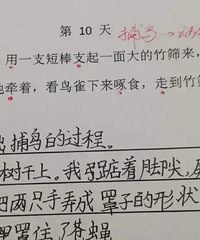 第 10 天 捕鸟→动
用一支短棒支起一面大的竹筛来,
牵着,看鸟雀下来啄食,走到竹筛
捕鸟的过程。
树干上。我踮着脚尖,
把两只手弄成罩子的形状
罩住了苍蝇